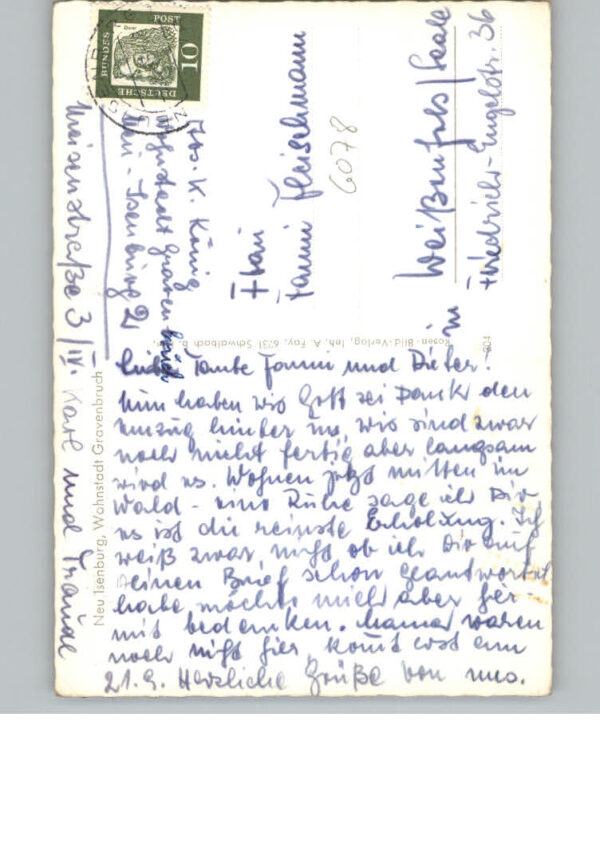 DEUTSCHE
BUNDES
POST
10
Jos. K. König
Wohnstadt Gravenbruch
Neu-Isenburg 2
Meisenstraße 3/IV.
Frau
Fanni Fleischmann
6078
in
Weißenfels/Saale
Friedrich-Engelsstr. 36
Rosen-Bild-Verlag, Inh. A. Fay, 6231 Schwalbach b.
Neu Isenburg, Wohnstadt Gravenbruch
Liebe Tante Fanni und Dieter!
Nun haben wir Gott sei Dank den
Umzug hinter uns, wir sind zwar
noch nicht fertig aber langsam
wird es. Wohnen jetzt mitten im
Wald - eine Ruhe sage ich Dir
es ist die reinste Erholung. Ich
weiß zwar nicht ob ich Dir auf
Deinen Brief schon geantwortet
habe, möchte mich aber hier-
mit bedanken. Mama waren
noch nicht hier, kommt erst am
21.9. Herzliche Grüße von uns.
Karl und Traudl